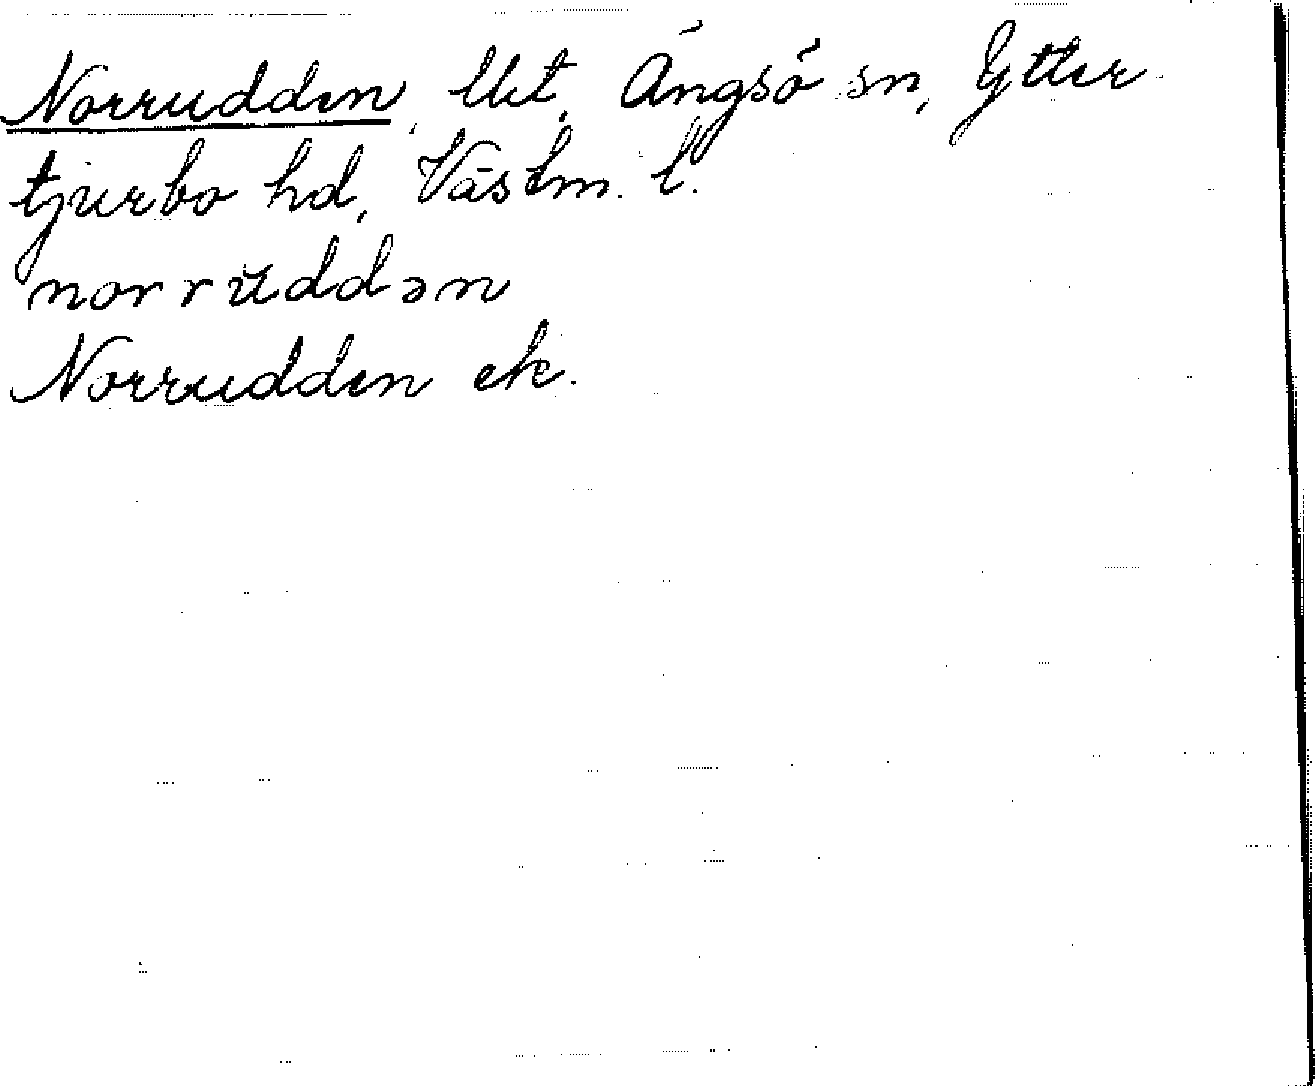 Norrudden, lht, Ängsö sn, Ytter-
tjurbo hd, Västm. l.
norrŭddən
Norrudden ek.